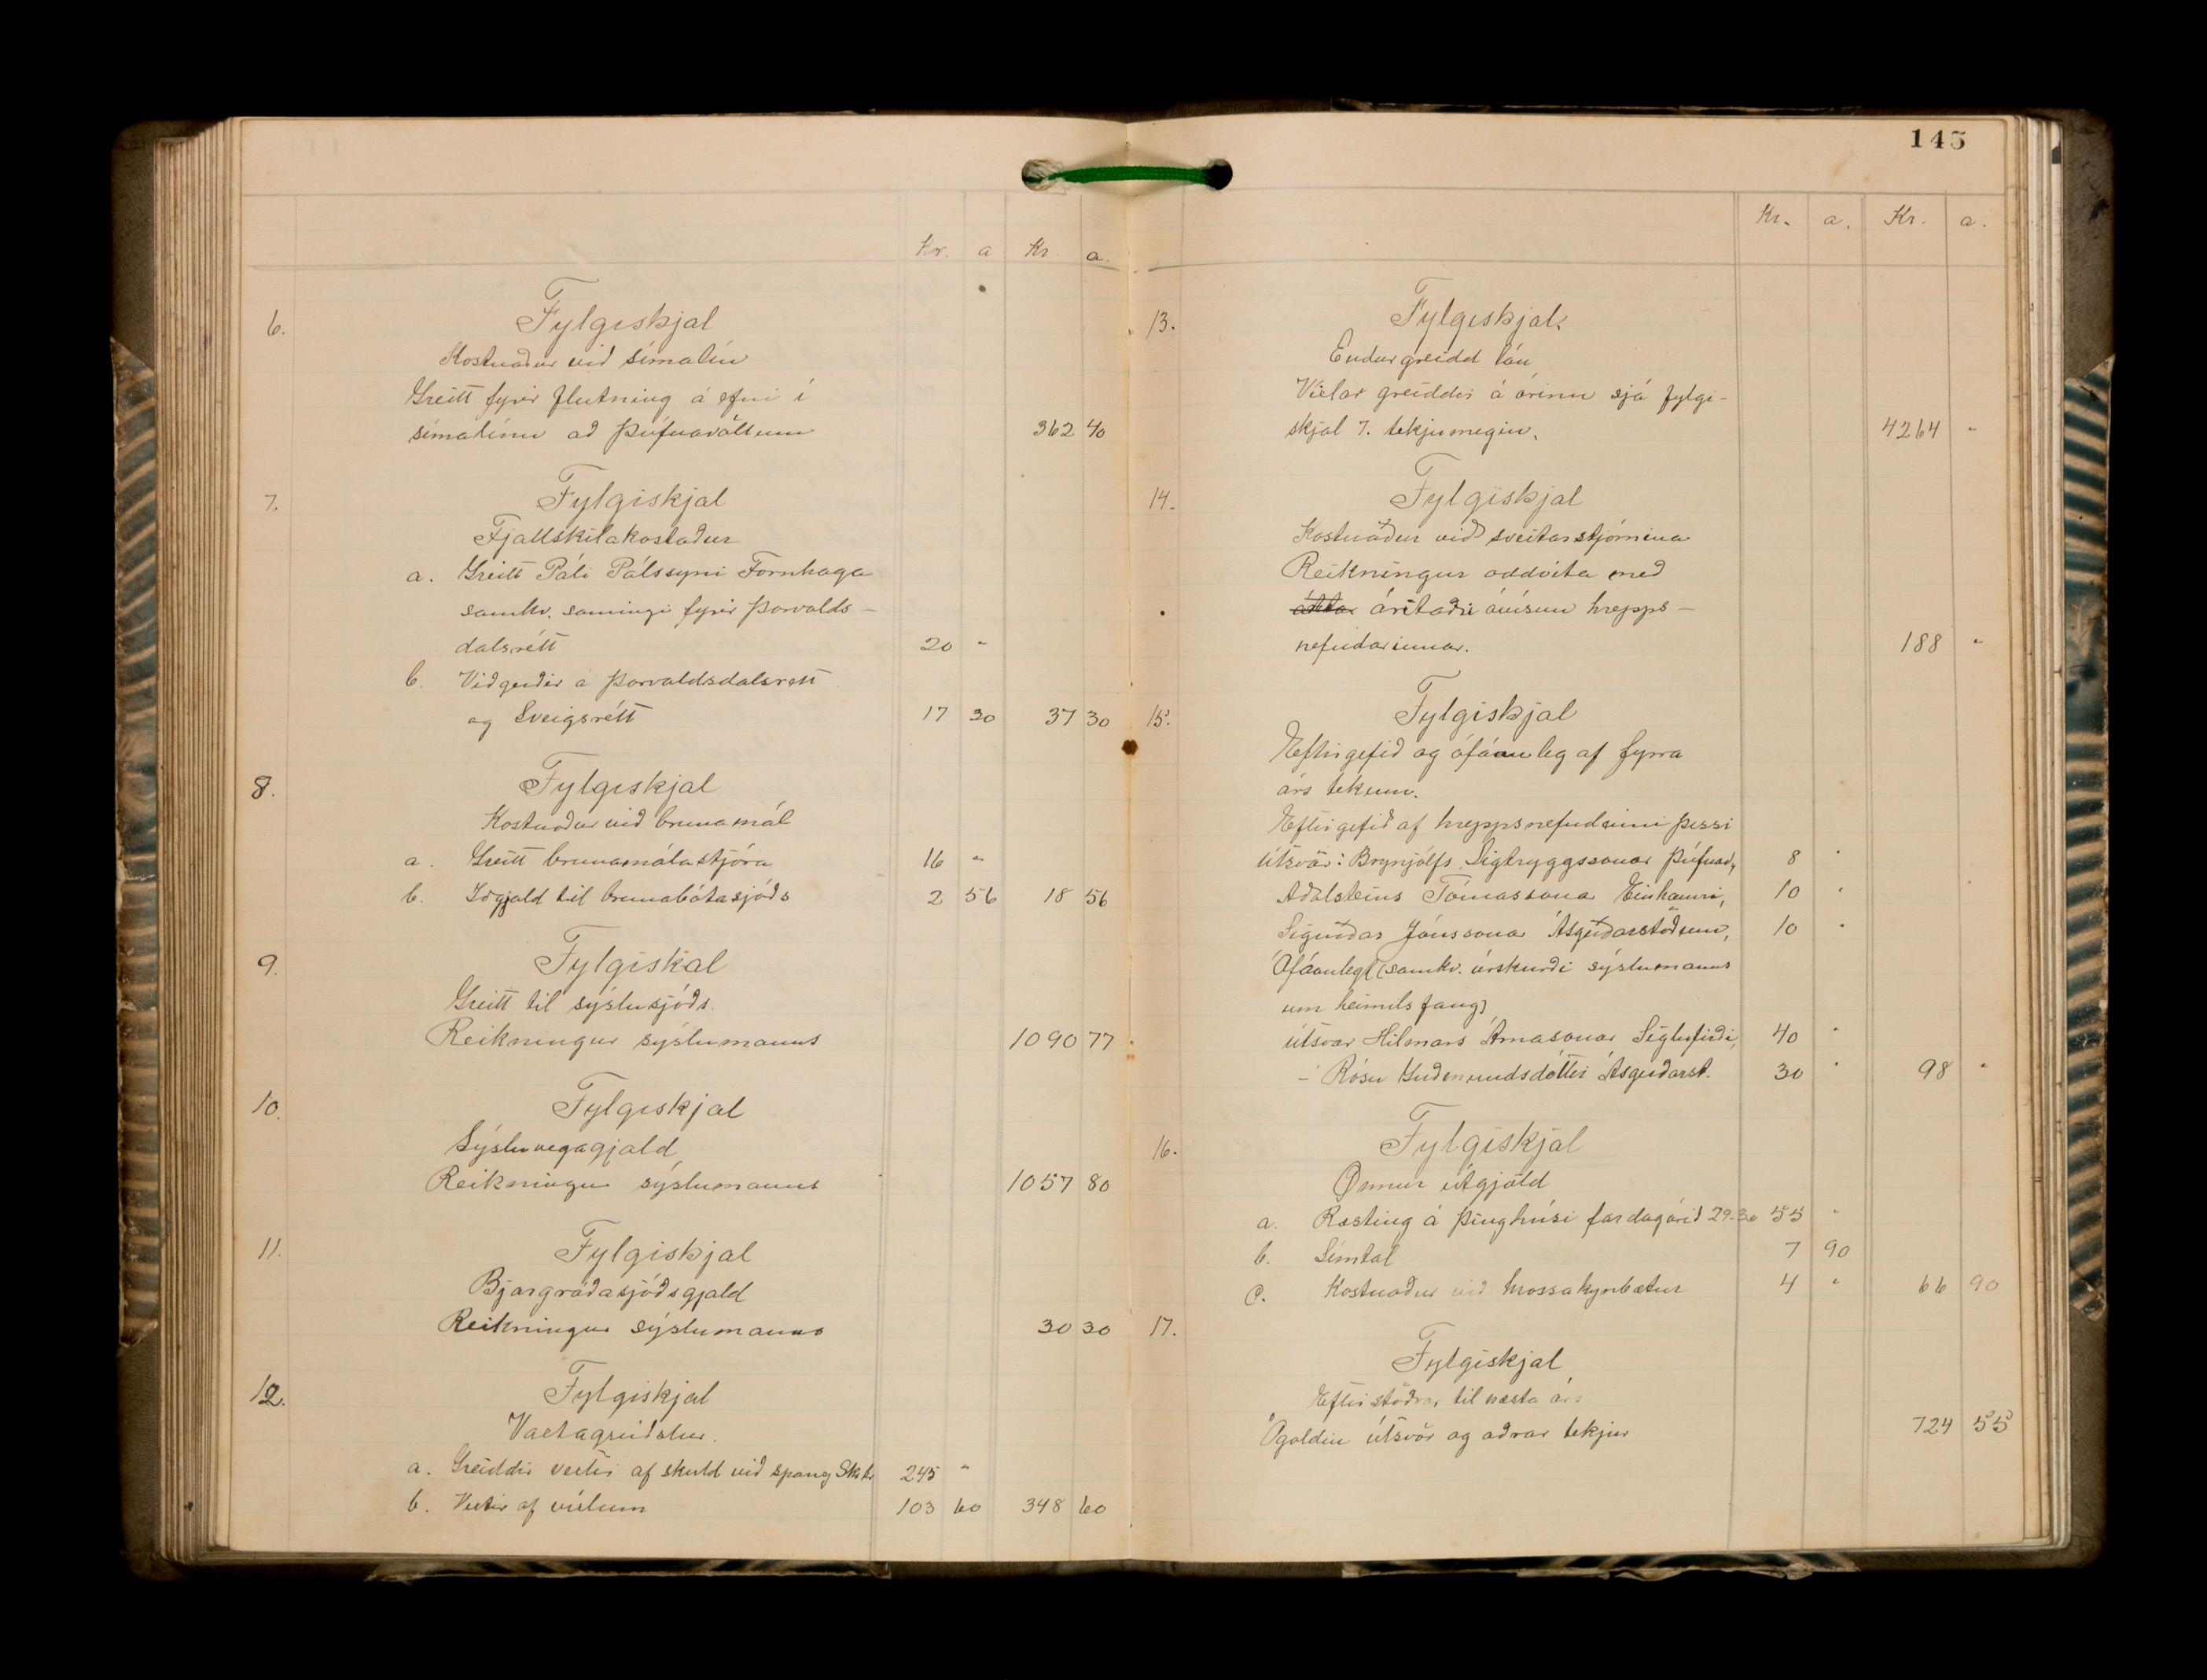 Kr. a Kr a.
6. Fylgiskjal
Kostnaður við símalín
Greitt fyrir flutning á efni í
símalínu að Þúfnavöllum 362 40
7. Fylgiskjal
Fjallskilakostaður
a. Greitt Páli Pálssyni Fornhaga
samkv. samningi fyrir Þorvalds-
dalsrétt 20 "
b. Viðgerðir á Þorvaldsdalsrétt
og Sveigsrétt 17 30 37 30
8. Fylgiskjal
Kostnaður við brunamál
a. Greitt brunamálastjóra 16 "
b. Iðgjald til brunabótasjóðs 2 56 18 56
9. Fylgiskal
Greitt til sýslusjóðs.
Reikningur sýslumanns 1090 77
10. Fylgiskjal
Sýsluvegagjald
Reikningur sýslumanns 1057 80
11. Fylgiskjal
Bjargráðasjóðsgjald
Reikningur sýslumanns 30 30
12. Fylgiskjal
Vaxtagreiðslur.
a. Greiddir vextir af skuld við 245 "
b. Vextir af víxlum 103 60 348 60
145
Kr. a. Kr. a.
13. Fylgiskjal.
Endurgreidd lán
Víxlar greiddir á árinu sjá fylgi-
skjal 7. tekjumegin. 4264 "
14. Fylgiskjal
Kostnaður við sveitarstjórnina
Reikningur oddvita með
áritaðri ávísun hrepps-
nefndarinnar. 188 "
15. Fylgiskjal
Eftirgefið og ófáanleg af fyrra
árs tekjum.
Eftirgefið af hreppsnefndinni þessi
útsvör: Brynjólfs Sigtryggssonar Þúfnav, 8 "
Aðalsteins Tómassona Einhamri, 10 "
Sigurðar Jónssonar Ásgerðarstöðum, 10 "
Ófáanlegt (samkv. úrskurði sýslumanns
um heimilsfang)
útsvar Hilmars Árnasonar Siglufirði, 40 "
- Rósu Guðmundsdóttir Ásgerðarst. 30 " 98 "
16. Fylgiskjal
Önnur útgjöld
a. Ræsting á þinghúsi fardagárið 29-30 55 "
b. Símtal 7 90
c. Kostnaður við hrossakynbætur 4 " 66 90
17. Fylgiskjal
Eftirstöðvar til næsta árs
Ógoldin útsvör og aðrar tekjur 724 55